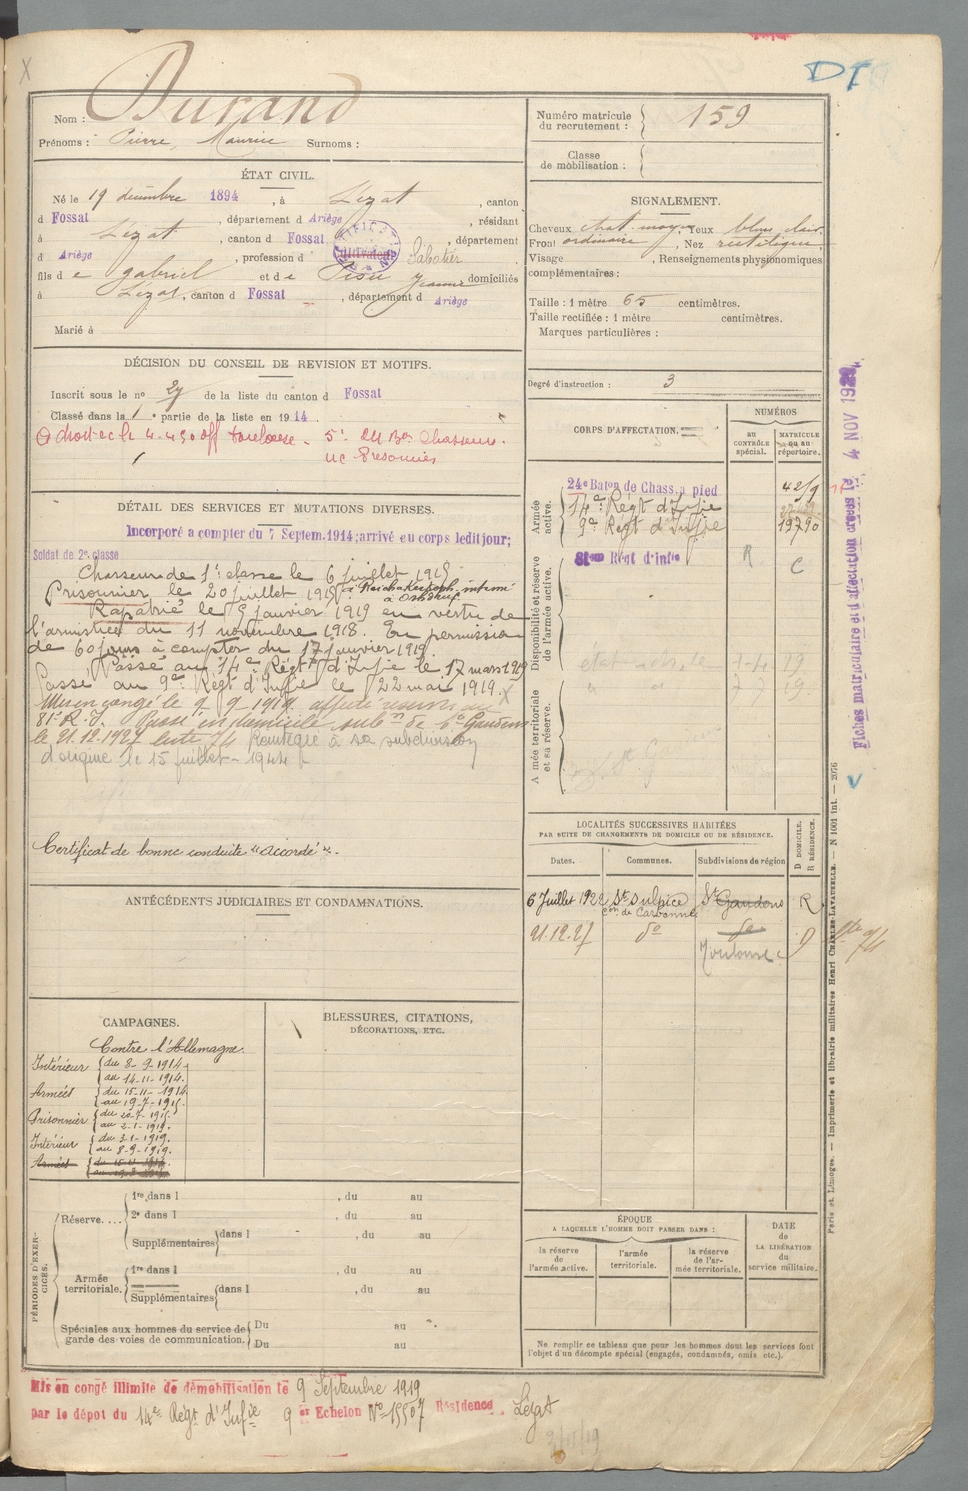 DI
Nom : Durand
Prénoms : Pierre, Maurice Surnoms :
Numéro matricule du recrutement : 159
Classe de mobilisation :
ÉTAT CIVIL.
Né le 19 décembre 1894, à Lézat, canton
d Fossat, département d Ariège, résidant
à Lézat, canton d Fossat, département
d Ariège, profession d Cultivateur Sabotier
fils d e Gabriel et d e Jeanne domiciliés
à Lézat, canton d Fossat, département d Ariège
Marié à
SIGNALEMENT.
Cheveux chat. moy. Yeux bleu clair.
Front ordinaire, Nez rectiligne.
Visage , Renseignements physionomiques
complémentaires :
Taille : 1 mètre 65 centimètres.
Taille rectifiée : 1 mètre centimètres.
Marques particulières :
Degré d'instruction : 3
DÉCISION DU CONSEIL DE REVISION ET MOTIFS.
Inscrit sous le nº 27 de la liste du canton d Fossat
Classé dans la 1 e partie de la liste en 1914.
CORPS D'AFFECTATION.
NUMÉROS
AU CONTRÔLE spécial.
MATRICULE ou au répertoire.
Armée active.
24e Baton de Chass. a pied
14e Régt d'Infie
9e Régt d'Infie 13790
Disponibilité et réserve de l'armée active.
81eme Régt d'infie R C
Armée territoriale et sa réserve.
Fiches matriculaire et d'affectation créées le 4 NOV
DÉTAIL DES SERVICES ET MUTATIONS DIVERSES.
Incorporé a compter du 7 Septem. 1914; arrivé au corps ledit jour;
Soldat de 2e classe
Chasseur de 1e classe le 6 juillet 1915
Prisonnier le 20 juillet 1915 interné
Rapatrié le 3 janvier 1919 en vertu de
l'armistice du 11 novembre 1918. En permission
de 60 jours à compter du 17 janvier 1919.
Passé au 14e Régt d'Infie le 17 mars 1919
Passé au 9e Régt d'Infie le 22 mai 1919.
Mis en congé le 9 9 1919 affecté réserve au
81e R.I. Passé en domicile subon de St Gaudens
le 21.12.1927 liste 74 Réintégré à sa subdivision
d'origine le 15 juillet 1944
Certificat de bonne conduite "accordé".
ANTÉCÉDENTS JUDICIAIRES ET CONDAMNATIONS.
LOCALITÉS SUCCESSIVES HABITÉES
PAR SUITE DE CHANGEMENTS DE DOMICILE OU DE RÉSIDENCE.
D DOMICILE. R RÉSIDENCE.
Dates. Communes. Subdivisions de région
6 Juillet 1922 St Sulpice con de Carbonne St Gaudens R
21.12.27 do do D
Toulouse
CAMPAGNES.
Contre l'Allemagne.
Intérieur du 8-9-1914 au 14-11-1914.
Armées du 15-11-1914 au 19-7-1915.
Prisonnier du 20-7-1915. au 2-1-1919.
Intérieur du 3-1-1919. au 8-9-1919.
Armées
BLESSURES, CITATIONS,
DÉCORATIONS, ETC.
PÉRIODES D'EXERCICES.
Réserve....
1re dans l , du au
2e dans l , du au
Supplémentaires dans l , du au
Armée territoriale.
1re dans l , du au
Supplémentaires dans l , du au
Spéciales aux hommes du service de garde des voies de communication. Du au
Du au
ÉPOQUE
A LAQUELLE L'HOMME DOIT PASSER DANS :
la réserve de l'armée active.
l'armée territoriale.
la réserve de l'armée territoriale.
DATE de LA LIBÉRATION du service militaire.
Ne remplir ce tableau que pour les hommes dont les services font
l'objet d'un décompte spécial (engagés, condamnés, omis etc.).
Paris et Limoges. — Imprimerie et librairie militaires Henri CHARLES-LAVAUZELLE. — N 1001 int. — 2076
Mis en congé illimité de démobilisation le 9 Septembre 1919
par le dépot du 14e Régt d'Infie 9 er Echelon No 15507 Résidence Lézat